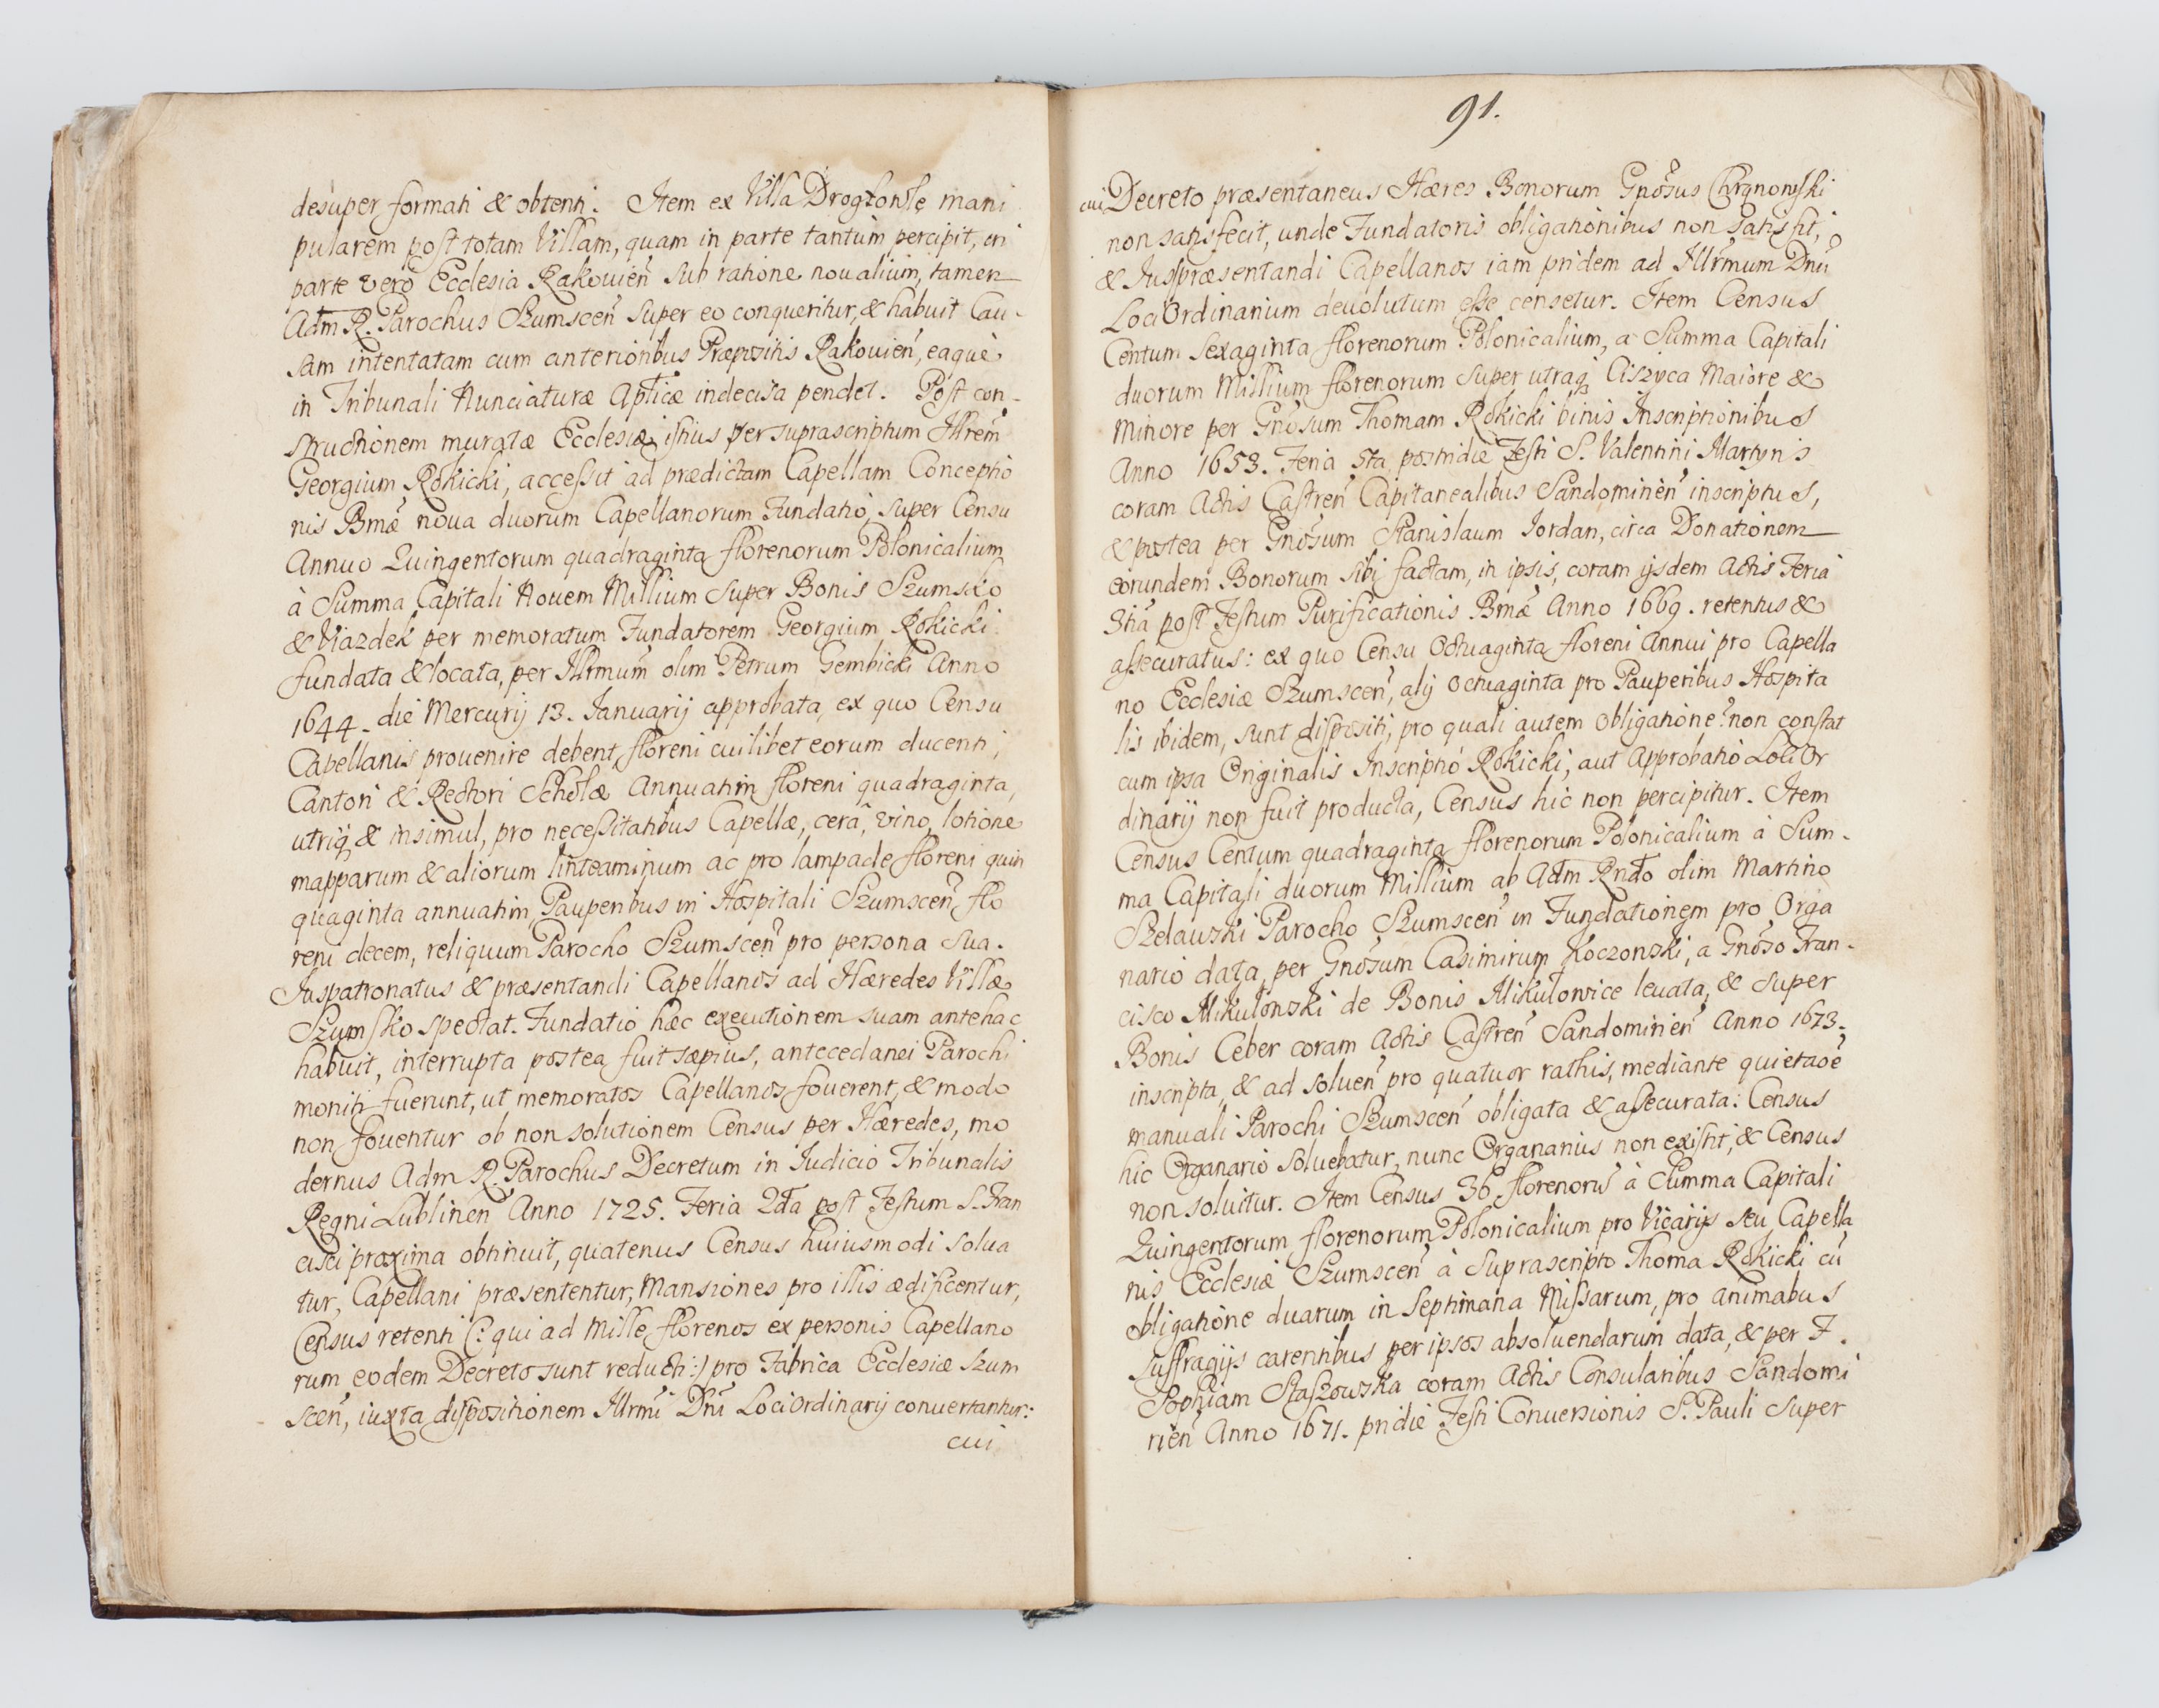 desuper formati & obtenti. Item ex Villa Drogkonſle mani
pularem post totam Villam, quam in parte tantùm percipit, in
parte verò Ecclesia Rakouien̄ sub ratione noualium, tamen
Adm R. Parochus Szumscen̄ super eo conqueritur, & habuit Cau-
sam intentatam cum anterioribus Præpositis Rakouien̄, eaque
in Tribunali Nunciaturæ Apl̄icæ indecisa pendet. Post con-
structionem muratæ Ecclesiæ istius per suprascriptum Illrem̄
Georgium Rokicki, acceſsit ad prædictam Capellam Conceptio
nis Bmǣ noua duorum Capellanorum Fundatio, super Censu
Annuo Quingentorum quadraginta florenorum Polonicalium
à Summa Capitali Nouem Millium super Bonis Szumsko
& Viazdek per memoratum Fundatorem Georgium Rokicki
fundata & locata, per Illrmum̄ olim Petrum Gembicki Anno
1644. die Mercurij 13. Ianuarij approbata, ex quo Censu
Capellanis prouenire debent floreni cuilibet eorum ducenti,
Cantori & Rectori Scholæ Annuatim floreni quadraginta,
utriq; & insimul, pro neceſsitatibus Capellæ, cerâ, vino, lotione
mapparum & aliorum linteaminum ac pro lampade floreni quin
quaginta annuatim, Pauperibus in Hospitali Szumscen̄ flo
reni decem, reliquum Parocho Szumscen̄ pro persona sua.
Iuspatronatus & præsentandi Capellanos ad Hæredes Villæ
Szumſko spectat. Fundatio hæc executionem suam antehac
habuit, interrupta postea fuit sæpius, antecedanei Parochi
moniti fuerunt, ut memoratos Capellanos fouerent, & modo
non fouentur ob non solutionem Census per Hæredes, mo
dernus Adm R. Parochus Decretum in Iudicio Tribunalis
Regni Lublinen̄ Anno 1725. Feria 2da post Festum S. Fran
cisci proxima obtinuit, quatenus Census huiusmodi solua
tur, Capellani præsententur, Mansiones pro illis ædificentur,
Census retenti (: qui ad Mille florenos ex personis Capellano
rum eodem Decreto sunt reducti :) pro Fabrica Ecclesiæ Szum
scen̄, iuxta dispositionem Illrmi̅ Dn̄i Loci Ordinarij conuertantur:
cui
91.
cui Decreto præsentaneus Hæres Bonorum Gnōsus Chrqnowſki
non satisfecit, unde Fundatoris obligationibus non satis fit,
& Iuspræsentandi Capellanos iam pridem ad Illrm̄um Dnū
Loci Ordinarium deuolutum eſse censetur. Item Census
Centum sexaginta florenorum Polonicalium, a Summa Capitali
duorum Millium florenorum super utraq; Ciszyca Maiore &
Minore per Gnōsum Thomam Rokicki binis Inscriptionibus
Anno 1653. Feria 5ta postridie Festi S. Valentini Martyris
coram Actis Castren̄ Capitanealibus Sandominen̄ inscriptus,
& postea per Gnōsum Stanislaum Iordan, circa Donationem
eorundem Bonorum sibi factam, in ipsis, coram ijsdem Actis Feria
3tiâ post Festum Purificationis Bmǣ Anno 1669. retentus &
aſsecuratus: ex quo Censu Octuaginta floreni Annui pro Capella
no Ecclesiæ Szumscen̄, alij Octuaginta pro Pauperibus Hospita
lis ibidem, sunt dispositi, pro quali autem Obligatione? non constat
cum ipsa Originalis Inscriptio Rokicki, aut Approbatio Loci Or
dinarij non fuit producta, Census hic non percipitur. Item
Census Centum quadraginta florenorum Polonicalium à Sum-
ma Capitali duorum Millium ab Adm Rndo olim Martino
Szelauski Parocho Szumscen̄ in Fundationem pro Orga
nario data, per Gnōsum Casimirum Koczonski, a Gnōso Fran-
cisco Mikulowski de Bonis Mikulowice leuata, & super
Bonis Ceber coram Actis Castren̄ Sandominien̄ Anno 1673.
inscripta, & ad soluen̄ pro quatuor rathis, mediante quietaōe
manuali Parochi Szumscen̄ obligata & aſsecurata: Census
hic Organario soluebatur, nunc Organarius non existit, & Census
non soluitur. Item Census 36 florenorū à Summa Capitali
Quingentorum florenorum Polonicalium pro Vicarijs seu Capella
nis Ecclesiæ Szumscen̄ à Suprascripto Thoma Rokicki cū
obligatione duarum in Septimana Miſsarum, pro animabus
suffragijs carentibus per ipsos absoluendarum data, & per F.
Sophiam Staszowska coram Actis Consularibus Sandomi
rien̄ Anno 1671. pridie Festi Conuersionis S. Pauli super